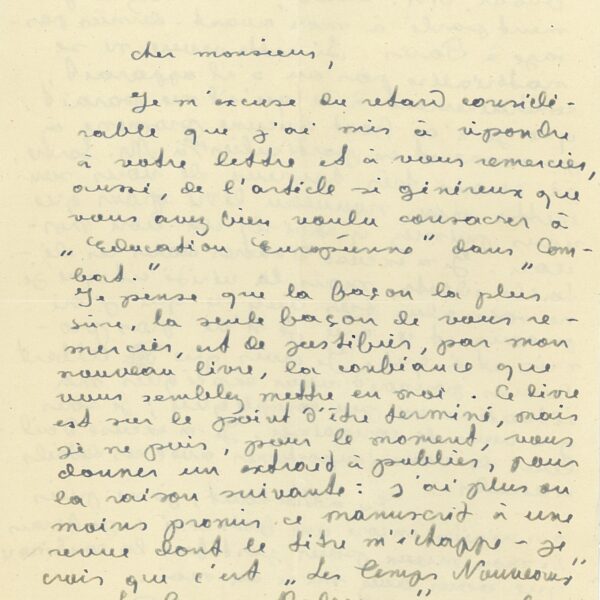 cher monsieur,
Je m'excuse du retard considé-
rable que j'ai mis à répondre
à votre lettre et à vous remercier,
aussi, de l'article si généreux que
vous avez bien voulu consacrer à
„Education Européenne" dans „Com-
bat."
Je pense que la façon la plus
sûre, la seule façon de vous re-
mercier, est de justifier, par mon
nouveau livre, la confiance que
vous semblez mettre en moi. Ce livre
est sur le point d'être terminé, mais
je ne puis, pour le moment, vous
donner un extrait à publier, pour
la raison suivante: j'ai plus ou
moins promis ce manuscrit à une
revue dont le titre m'échappe - je
crois que c'est „Les Temps Nouveaux"